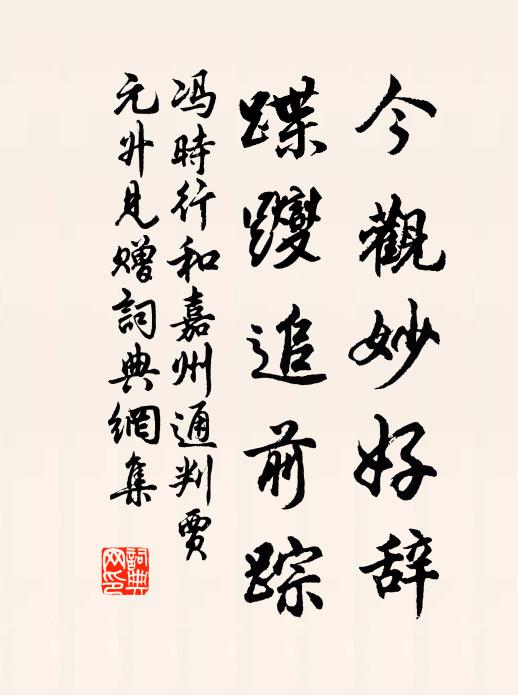 今觀妙好辞
蹀躞追前踪
冯時行和嘉州通判贾
元升見赠詞典網集
詞典网印